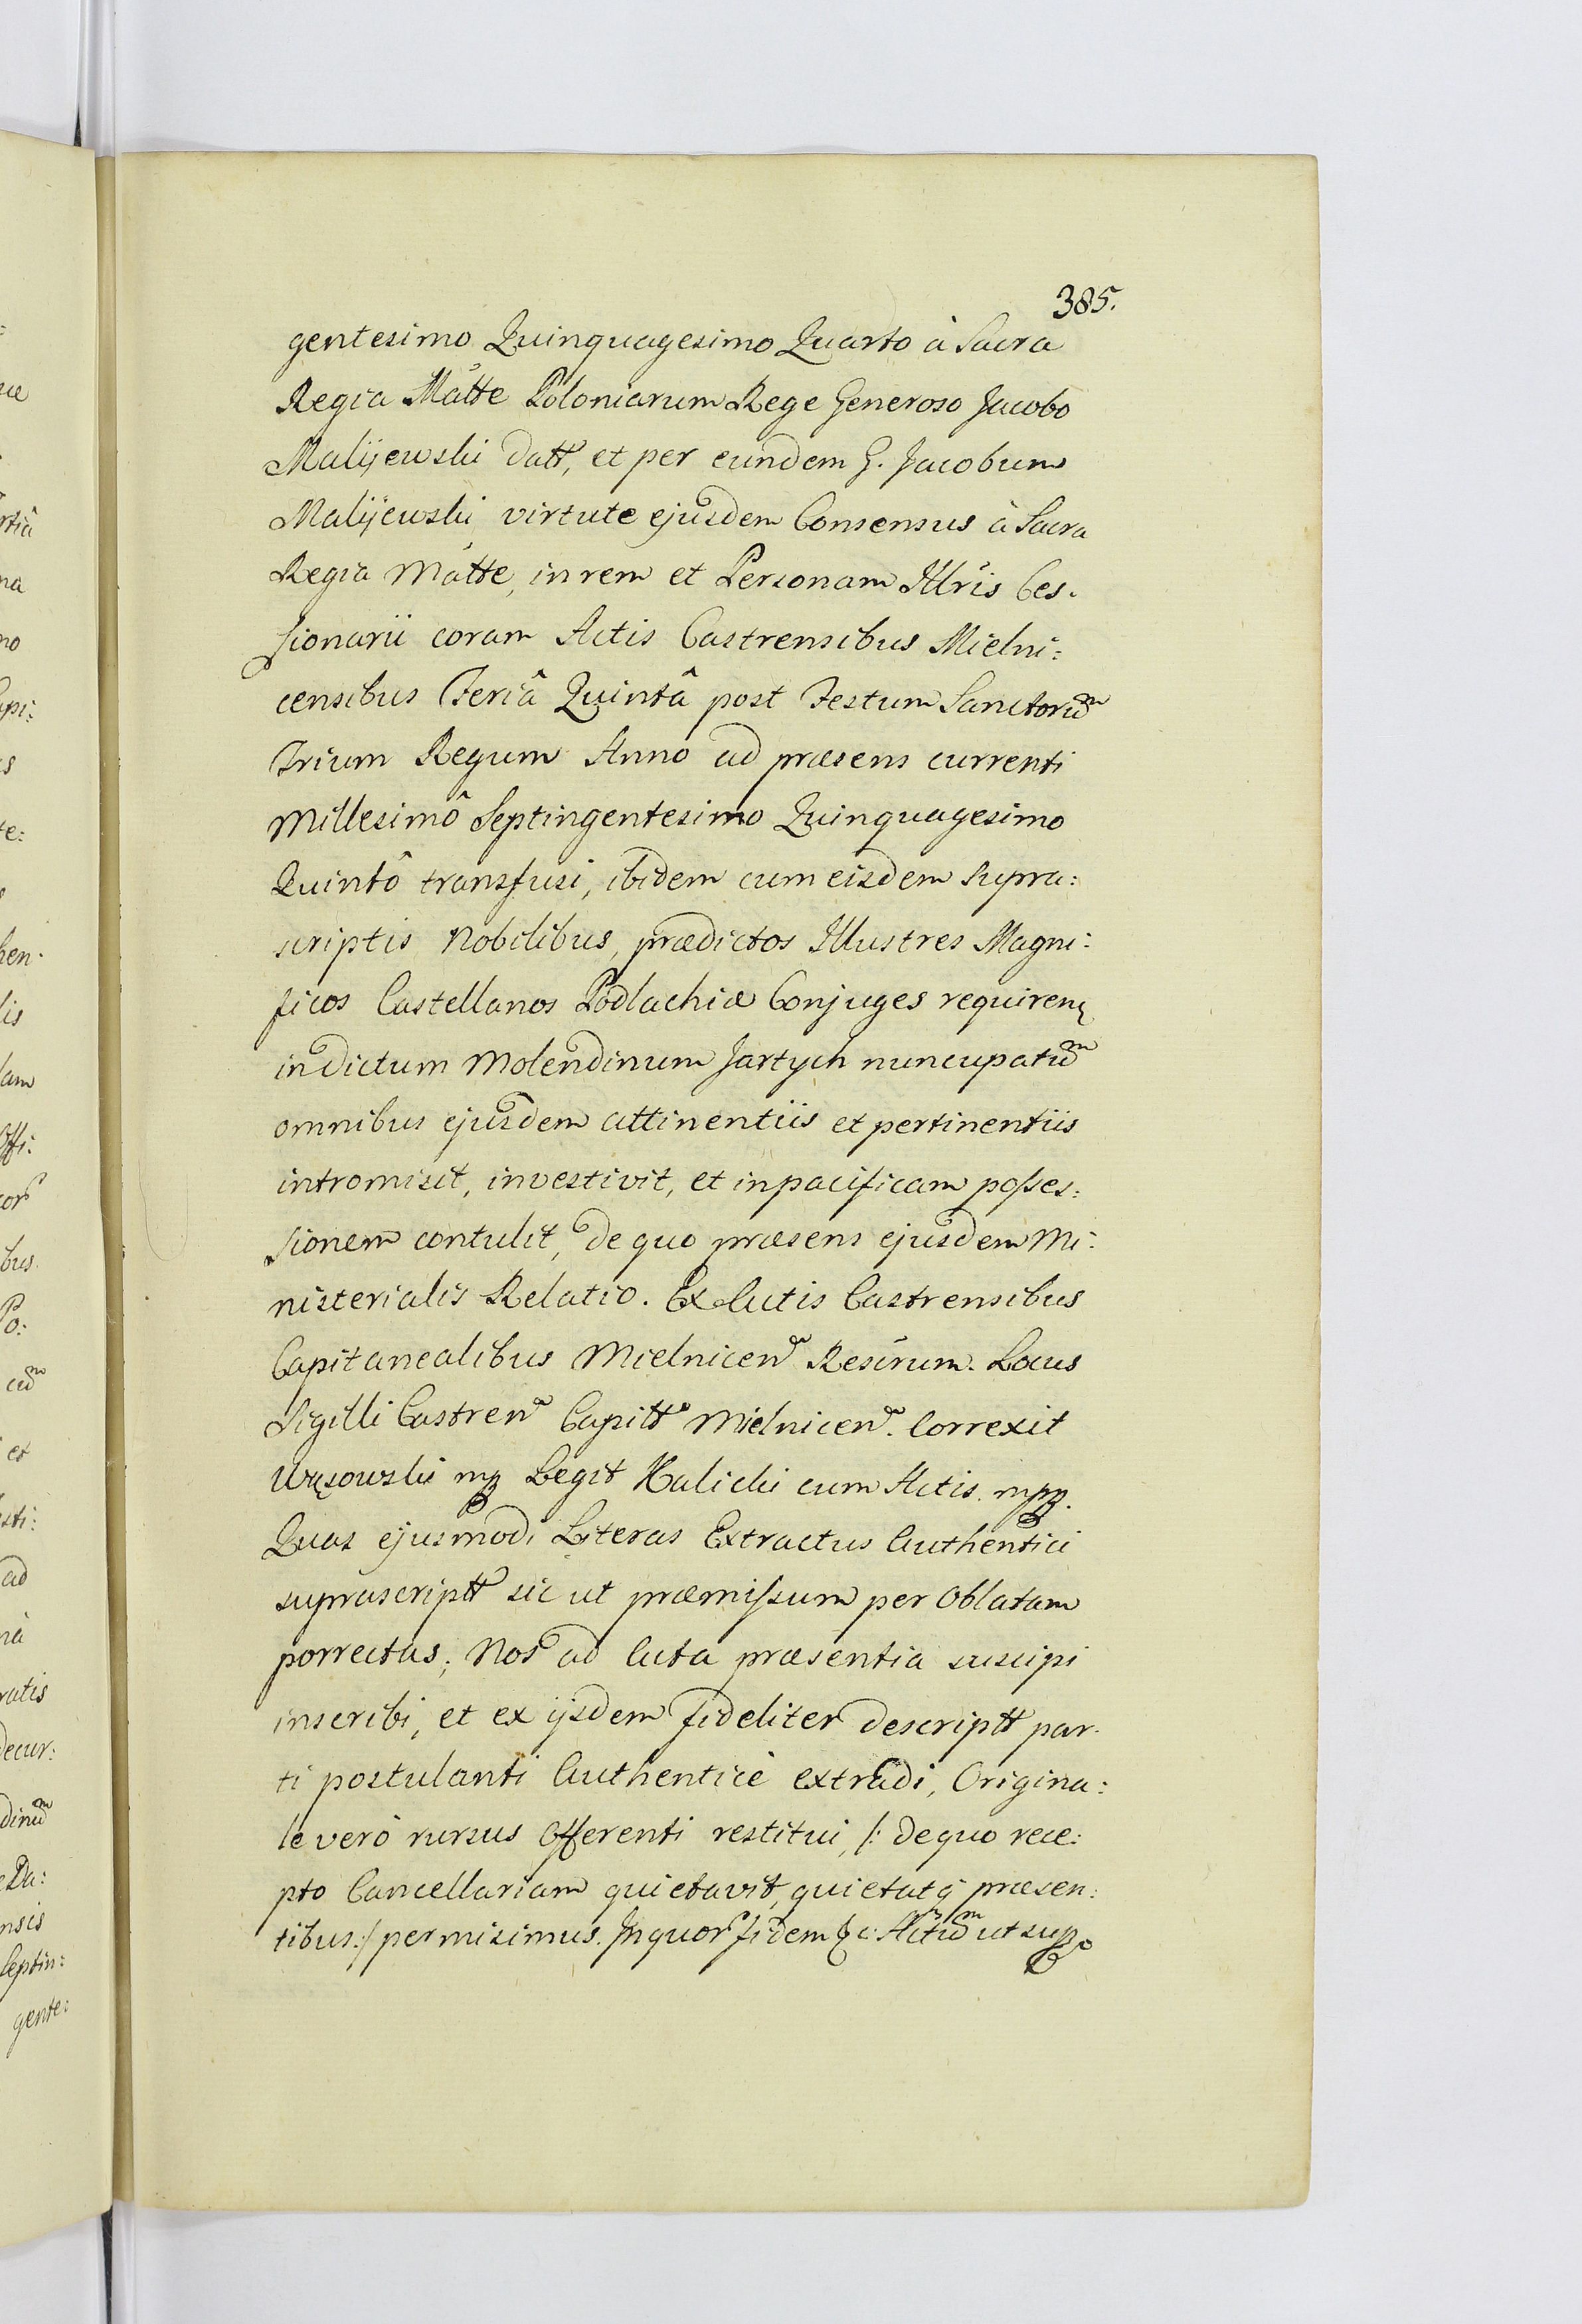 385.
gentesimo Quinquagesimo Quarto à Sacra
Regia Mätte Poloniarum Rege Generoso Jacobo
Malijewski datt, et per eundem G. Jacobum
Malijewski virtute ejusdem Consensus à Sacra
Regia Mätte, in rem et Personam Illris Ces-
sionarii coram Actis Castrensibus Mielni:
censibus Feriâ Quintâ post Festum Sanctorum
Trium Regum Anno ad præsens currenti
Millesimô Septingentesimo Quinquagesimo
Quintô transfusi, ibidem cum eisdem supra:
scriptis Nobilibus, prædictos Illustres Magni:
ficos Castellanos Podlachiæ Conjuges requiren
in dictum Molendinum Jartych nuncupatum
omnibus ejusdem attinentiis et pertinentiis
intromisit, investivit, et in pacificam posses:
sionem contulit, de quo præsens ejusdem Mi:
nisterialis Relatio. Ex Actis Castrensibus
Capitanealibus Mielnicen Resčrum. Locus
Sigilli Castren Capitt Mielnicen. Correxit
Wąsowski mp Legit Halicki cum Actis. mpp.
Quas ejusmodi Literas Extractus Authentici
suprascriptt sic ut præmissum per Oblatam
porrectas; Nos ad Acta præsentia suscipi
inscribi, et ex ijsdem fideliter descriptt par-
ti postulanti Authenticè extradi, Origina:
le verò rursus Offerenti restitui, /: de quo rece:
pto Cancellariam quietavit, quietatq præsen:
tibus :/ permisimus. In quor fidem &c: Actum ut sup.